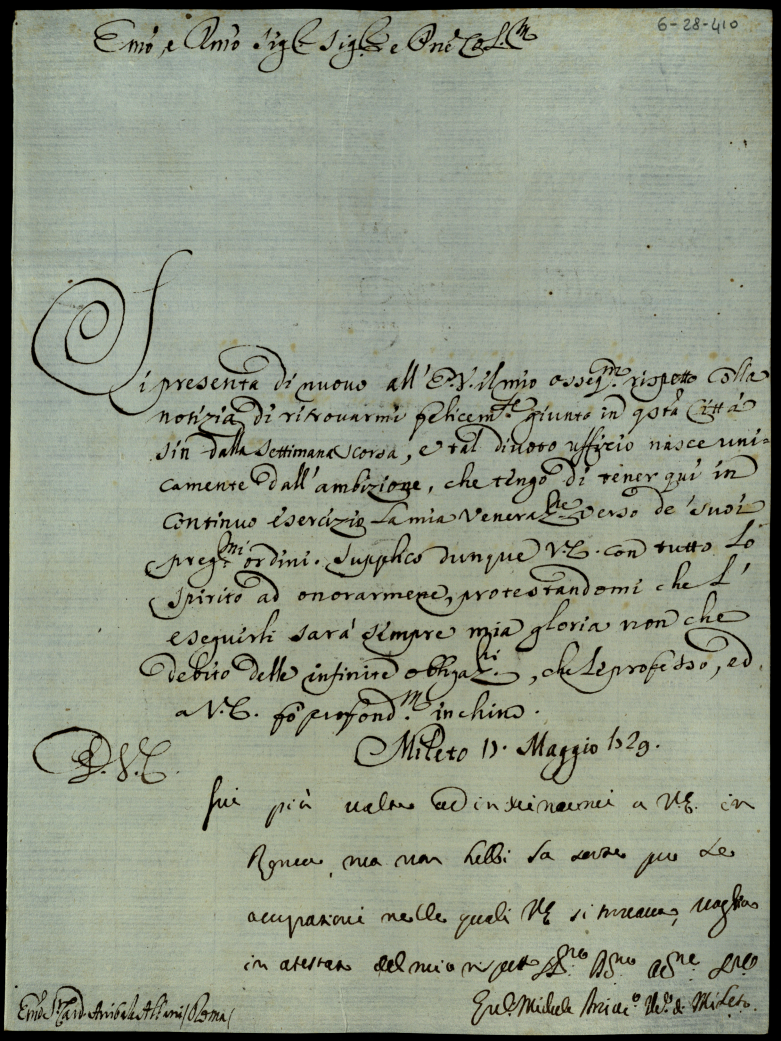 6-28-410
Emo e Rmo Sig.r Sig.r e Pne Col.mo
Si presenta di nuovo all'E.V. il mio osseq.mo rispetto colla
notizia di ritrovarmi felicem.te giunto in qsta Città
sin dalla settimana scorsa, e tal divoto ufficio nasce uni=
camente dall'ambizione, che tengo di tener qui in
continuo esercizio la mia venera.ne verso de' suoi
preg.mi ordini. Supplico dunque V.E. con tutto lo
spirito ad onorarmene, protestandomi che l'
eseguirli sarà sempre mia gloria non che
debito delle infinite obbligaz.ni, che le professo, ed
a V.E. fo profond.mo inchino.
Mileto 11. Maggio 1729.
D.V.E.
fui più volte ad inchinarmi a V.E. in
Roma, ma non hebbi la sorte per le
occupazioni nelle quali VE si trovava, voglio
in atestato del mio rispetto
Emo Sr. Card. Annibale Albani /Roma/
Michele Vo. di Mileto.